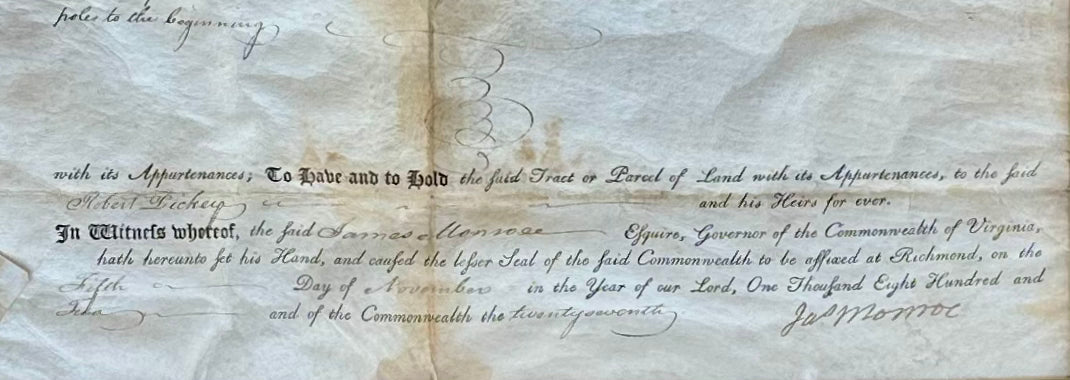 poles to the beginning
with its Appurtenances; To Have and to Hold the said Tract or Parcel of Land with its Appurtenances, to the said
Robert Dickey and his Heirs for ever.
In Witness whereof, the said James Monroe Esquire, Governor of the Commonwealth of Virginia,
hath hereunto set his Hand, and caused the lesser Seal of the said Commonwealth to be affixed at Richmond, on the
Fifth Day of November in the Year of our Lord, One Thousand Eight Hundred and
Two and of the Commonwealth the twentyseventh
Jas Monroe